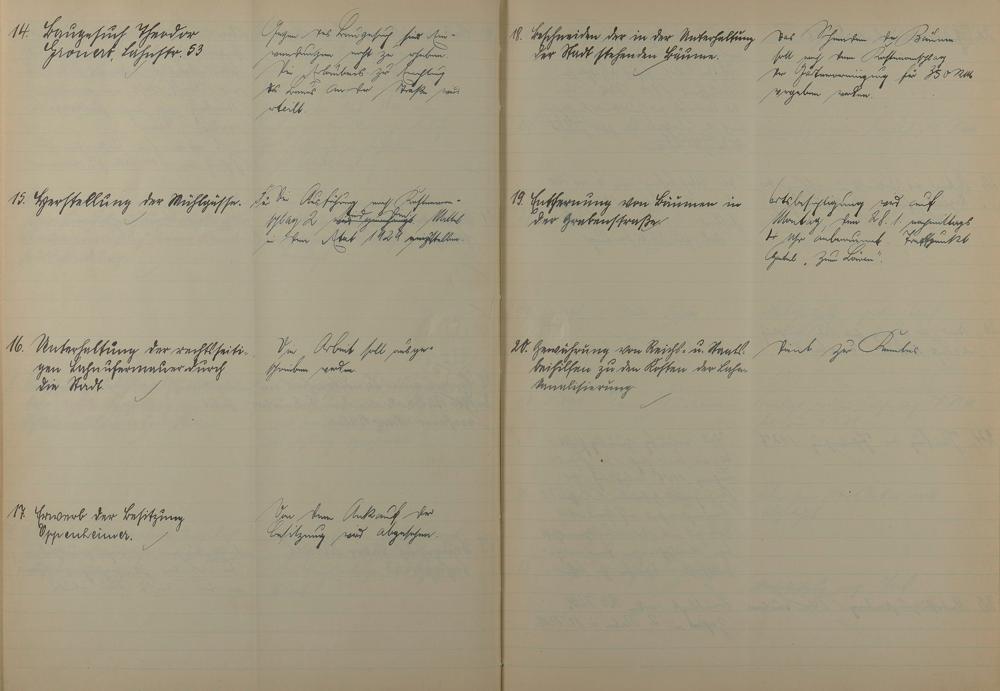 14. Baugesuch Theodor
Gronert, Lahnstr. 53
Gegen das Baugesuch sind Ein-
wendungen nicht zu erheben.
Die Erlaubnis zur Errichtung
des Baues an der Straße wird
erteilt.
15. Herstellung der Mühlgasse.
Für die Ausführung nach Kostenan-
schlag 2 sind Mittel
in den Etat 1929 einzustellen.
16. Unterhaltung der rechtsseiti-
gen Lahnufermauer durch
die Stadt
Die Arbeit soll ausge-
schrieben werden.
17. Erwerb der Besitzung
Oppenheimer.
Von dem Ankauf der
Besitzung wird abgesehen.
18. Beschneiden der in der Unterhaltung
der Stadt stehenden Bäume.
Das Schneiden der Bäume
soll nach dem Kostenanschlag
der Gärtnervereinigung für 350 Mk
vergeben werden.
19. Entfernung von Bäumen in
der Grabenstraße
Ortsbesichtigung wird auf
Montag, den nachmittags
Uhr anberaumt. Treffpunkt
Hotel „Zum Löwen".
20. Gewährung von Reichs- u. Staats-
beihilfen zu den Kosten der Lahn-
kanalisierung
Dient zur Kenntnis